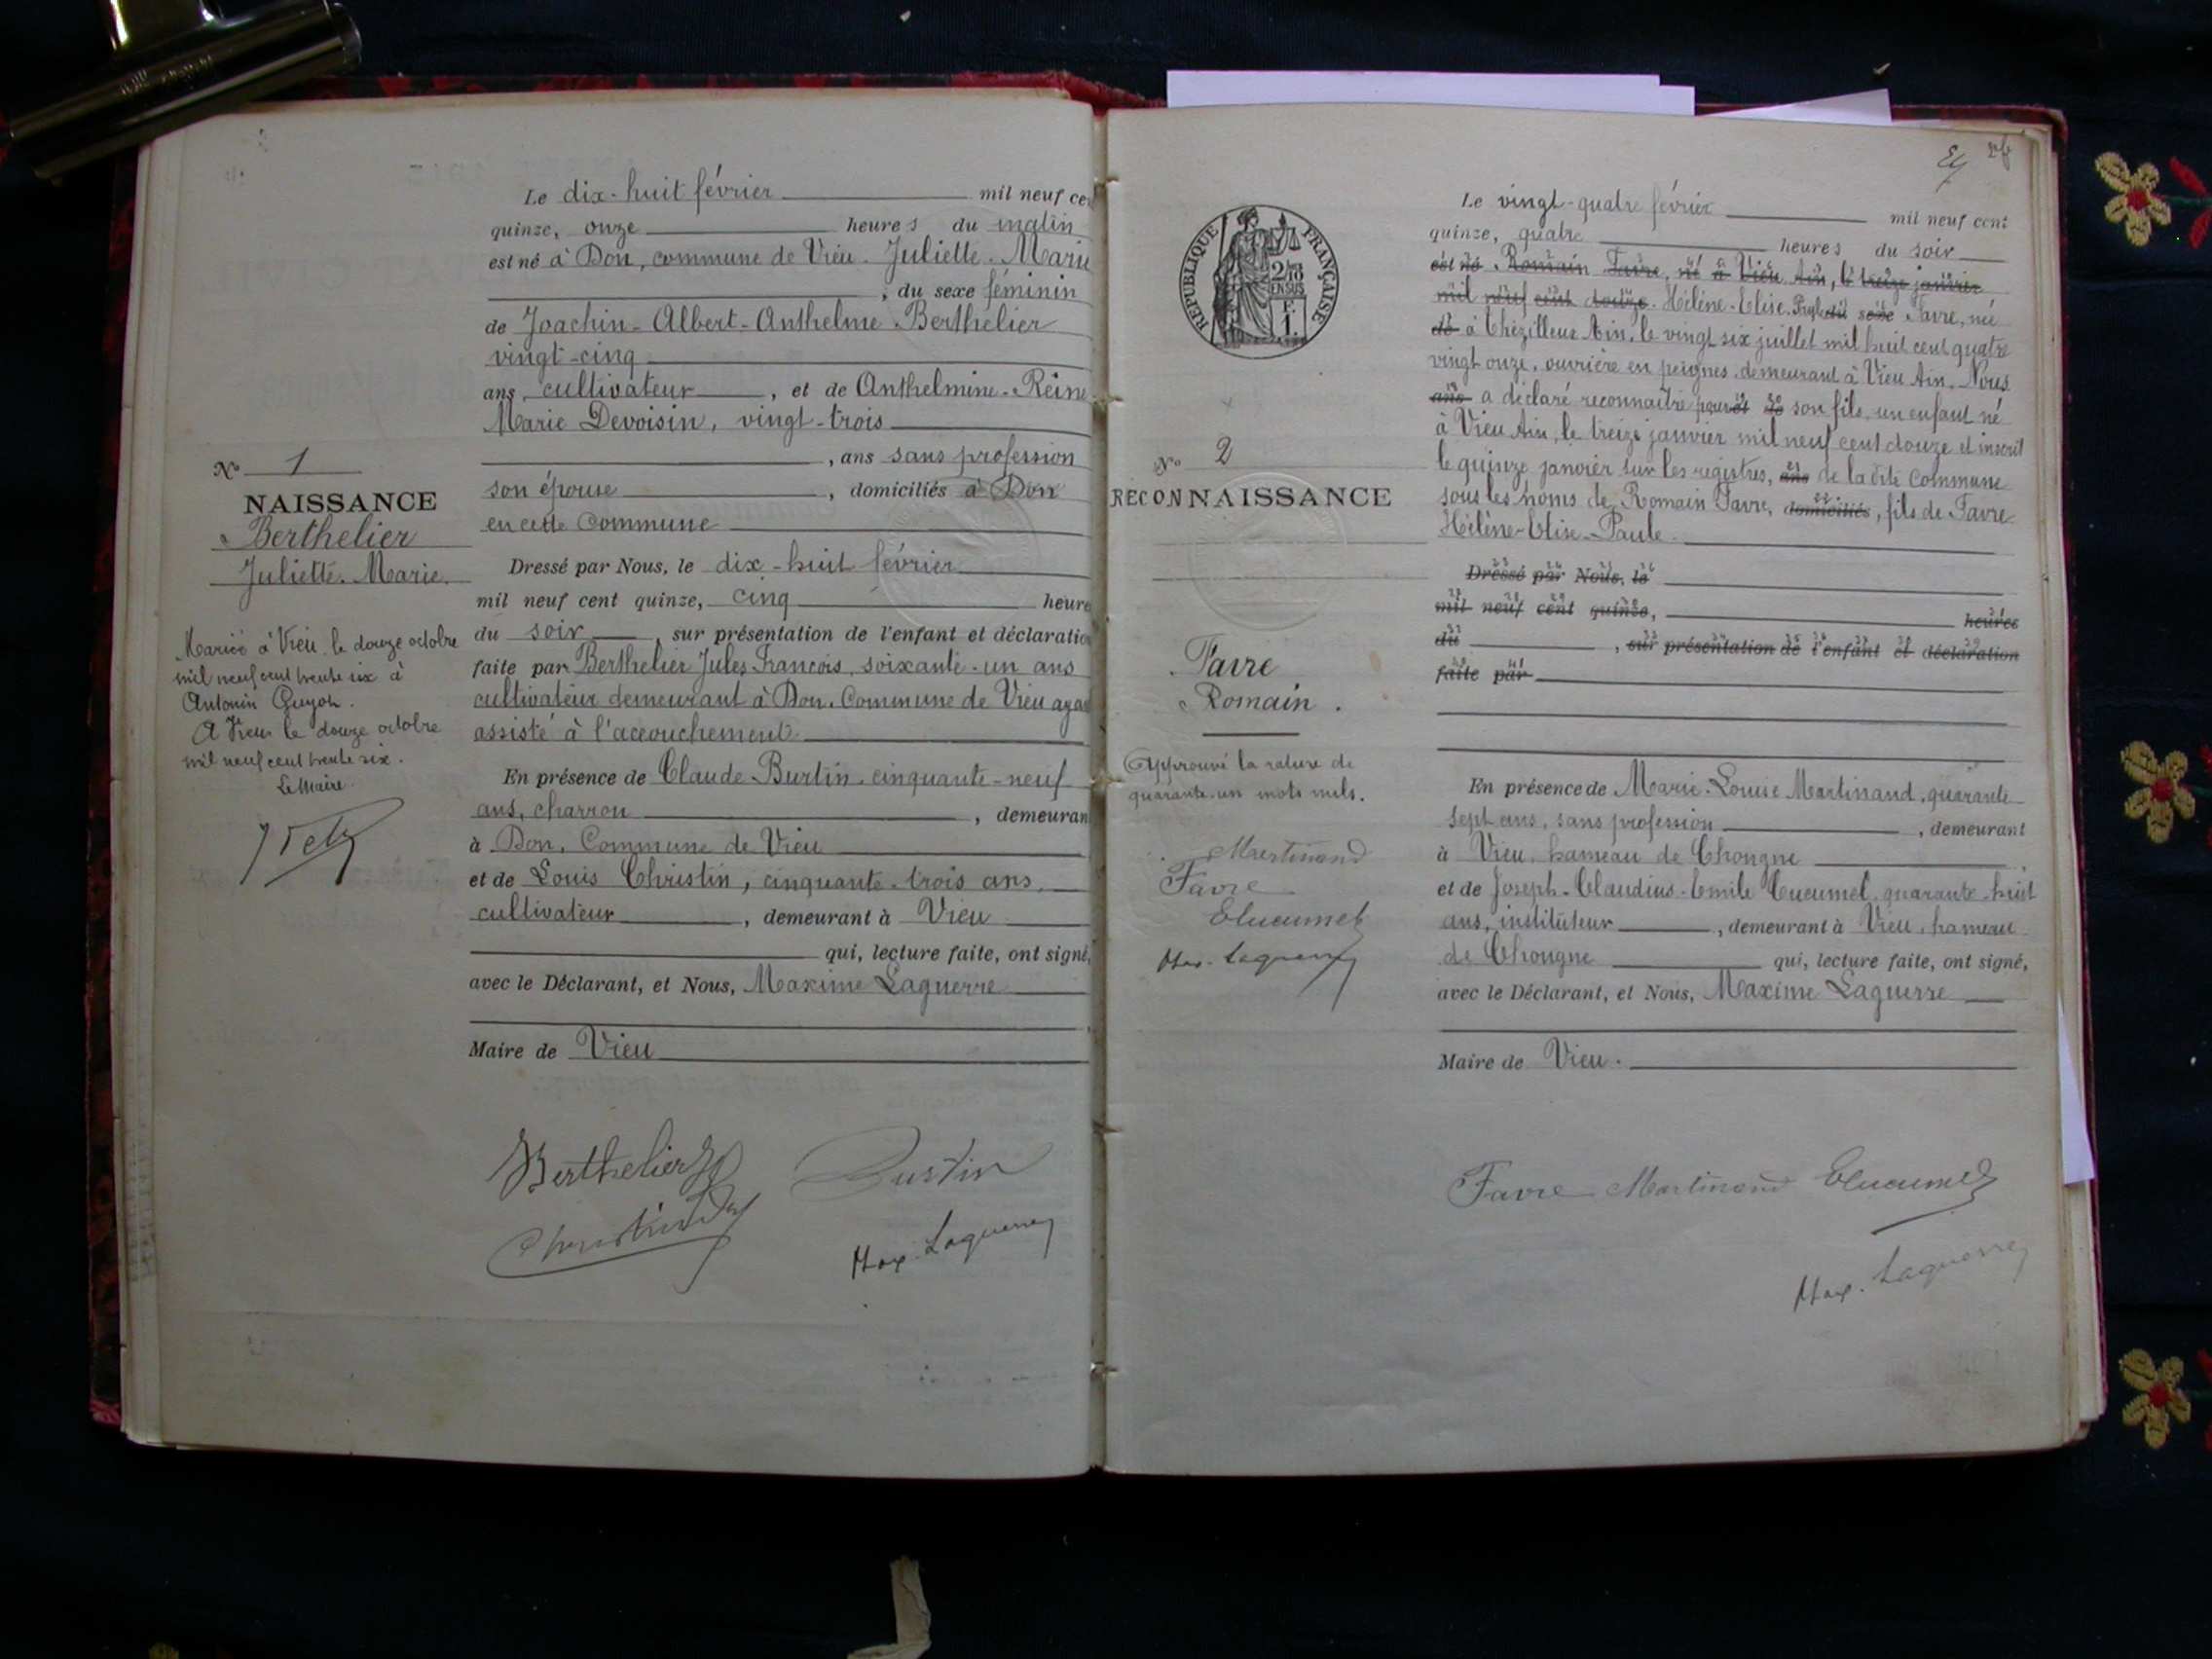 Le dix-huit février mil neuf cen
quinze, onze heures du matin
est né à Don, commune de Vieu. Juliette. Marie
, du sexe féminin
de Joachin-Albert-Anthelme Berthelier
vingt-cinq
ans, cultivateur, et de Anthelmine-Reine
Marie Devoisin, vingt-trois
, ans sans profession
son épouse, domiciliés à Don
en cette Commune
Dressé par Nous, le dix-huit février
mil neuf cent quinze, cinq heure
du soir, sur présentation de l'enfant et déclaration
faite par Berthelier Jules François, soixante-un ans
cultivateur demeurant à Don, Commune de Vieu ayan
assisté à l'accouchement
En présence de Claude Burtin, cinquante-neuf
ans, charron, demeuran
à Don, Commune de Vieu
et de Louis Christin, cinquante-trois ans,
cultivateur, demeurant à Vieu
qui, lecture faite, ont signé,
avec le Déclarant, et Nous, Maxime Laguerre
Maire de Vieu
N° 1
NAISSANCE
Berthelier
Juliette. Marie.
Mariée à Vieu le douze octobre
mil neuf cent trente six à
Antonin Guyot.
A Vieu le douze octobre
mil neuf cent trente six.
Le Maire.
Berthelier Burtin
Christin
Max. Laguerre
RÉPUBLIQUE FRANÇAISE
2/10
EN SUS
F.
1.
N° 2
RECONNAISSANCE
Favre
Romain.
Approuvé la rature de
quarante-un mots nuls.
Martinand
Favre
Cucumel
Max. Laguerre
Le vingt-quatre février mil neuf cent
quinze, quatre heures du soir
est né Romain Favre, né à Vieu Ain, le treize janvier
mil neuf cent douze. Hélène-Elise-Paule du sexe Favre, née
de à Thézillieu Ain, le vingt six juillet mil huit cent quatre
vingt onze, ouvrière en peignes, demeurant à Vieu Ain, Nous
ans a déclaré reconnaitre pour et de son fils, un enfant né
à Vieu Ain, le treize janvier mil neuf cent douze et inscrit
le quinze janvier sur les registres, ans de la dite Commune
sous les noms de Romain Favre, domiciliés, fils de Favre
Hélène-Elise-Paule.
Dressé par Nous, le
mil neuf cent quinze, heures
du, sur présentation de l'enfant et déclaration
faite par
En présence de Marie-Louise Martinand, quarante
sept ans, sans profession, demeurant
à Vieu, hameau de Chongne
et de Joseph-Claudius-Emile Cucumel, quarante-huit
ans, instituteur, demeurant à Vieu, hameau
de Chongne qui, lecture faite, ont signé,
avec le Déclarant, et Nous, Maxime Laguerre
Maire de Vieu.
Favre Martinand Cucumel
Max. Laguerre